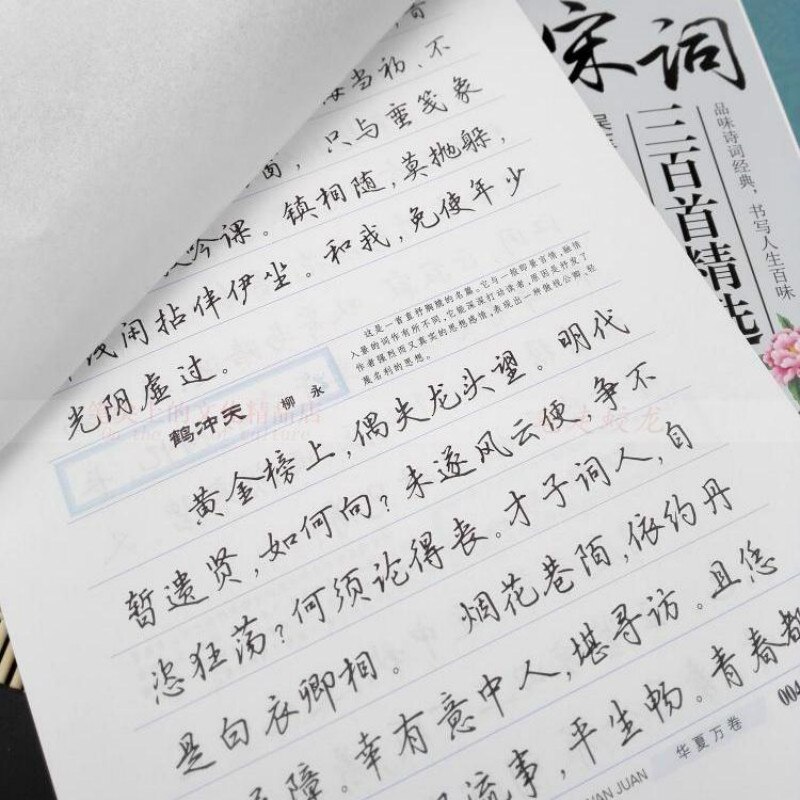 当初、不
，只与蛮笺象
吟课。镇相随，莫抛躲，
闲拈伴伊坐。和我，免使年少
光阴虚过。
这是一首直抒胸臆的名篇。它与一般即景言情、融情
入景的词作有所不同，它能深深打动读者，原因是抒发了
作者强烈而又真实的思想感情，表现出一种傲视公卿、轻
蔑名利的思想。
鹤冲天 柳永
黄金榜上，偶失龙头望。明代
暂遗贤，如何向？未遂风云便，争不
恣狂荡？何须论得丧。才子词人，自
是白衣卿相。 烟花巷陌，依约丹
障。幸有意中人，堪寻访。且恁
流事，平生畅。青春都
华夏万卷
JUAN
004
宋词
三百首精选
品味诗词经典，书写人生百味